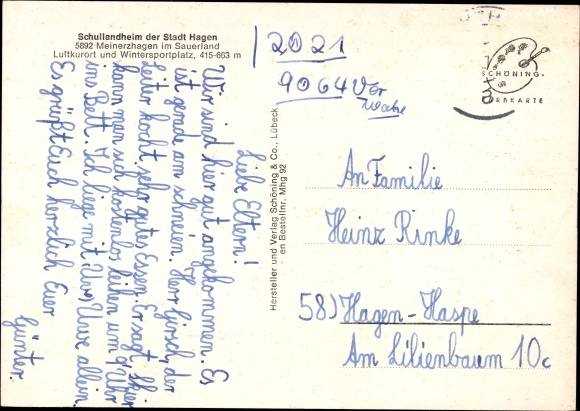 Schullandheim der Stadt Hagen
5892 Meinerzhagen im Sauerland
Luftkurort und Wintersportplatz, 415-663 m
Liebe Eltern!
Wir sind hier gut angekommen. Es
ist gerade am schneien. Herr Girsch, der
Leiter kocht sehr gutes Essen. Er sagt, Skier
kann man sich kostenlos leihen um 9 Uhr
ins Bett. Ich liege mit Uwe allein.
Es grüßt Euch herzlich Euer
Günter.
Hersteller und Verlag Schöning & Co., Lübeck
en Bestellnr. Mhg 92
2021
9064
SCHÖNING-
RBKARTE
An Familie
Heinz Rinke
58) Hagen-Haspe
Am Lilienbaum 10c